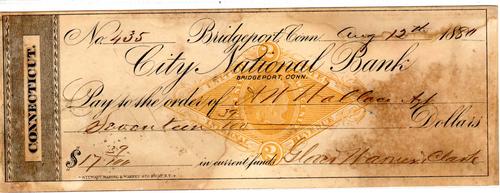 CONNECTICUT.
No. 435 Bridgeport, Conn. Aug 12th 1880
City National Bank
BRIDGEPORT, CONN.
Pay to the order of A W Wallace
Seventeen 39/100 Dollars
$17 39/100 in current funds. Warner